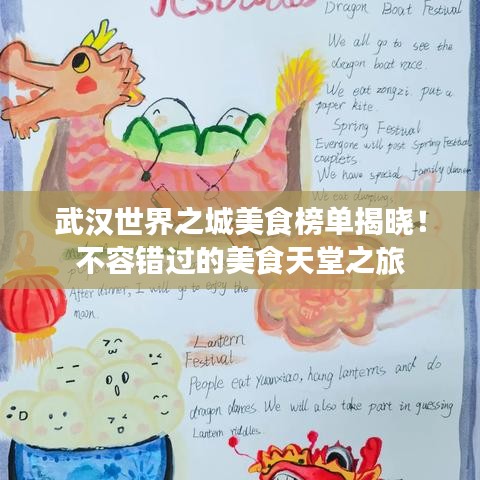 Dragon Boat Festival
We all go to see the
dragon boat race.
We eat zongzi. put a
paper kite.
Spring Festival
Everyone will post Spring Festival
couplets.
We have special family dinner
We eat dumpling
武汉世界之城美食榜单揭晓！
不容错过的美食天堂之旅
After dinner, I will go to enjoy the
moon.
Lantern
Festival
People eat Yuanxiao, hang lanterns and do
dragon dances. We will also take part in guessing
Lantern riddles.